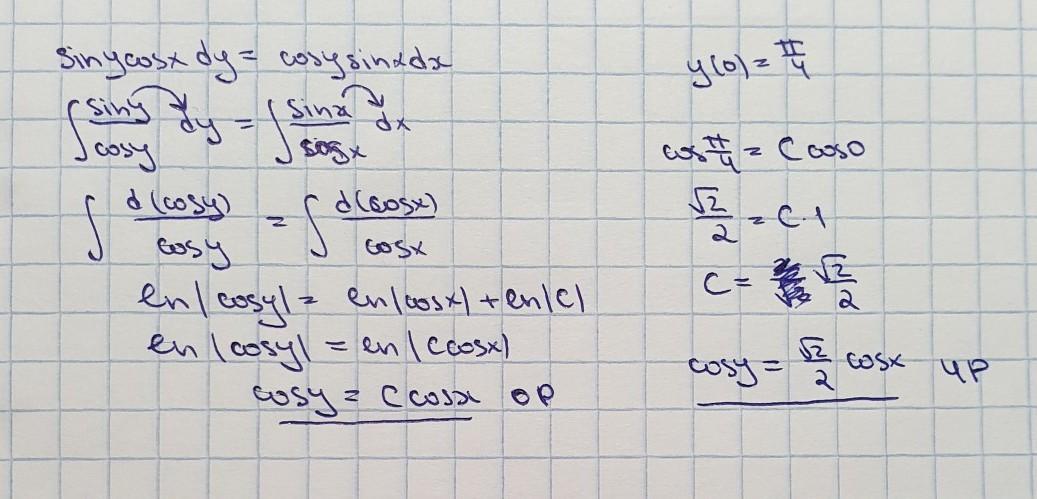 sinycosx dy = cosysinxdx
∫ siny/cosy dy = ∫ sinx/cosx dx
∫ d(cosy)/cosy = ∫ d(cosx)/cosx
ln|cosy| = ln|cosx| + ln|C|
ln|cosy| = ln|Ccosx|
cosy = Ccosx ОР
y(0) = π/4
cos π/4 = C cos0
√2/2 = C·1
C = √2/2
cosy = √2/2 cosx ЧР